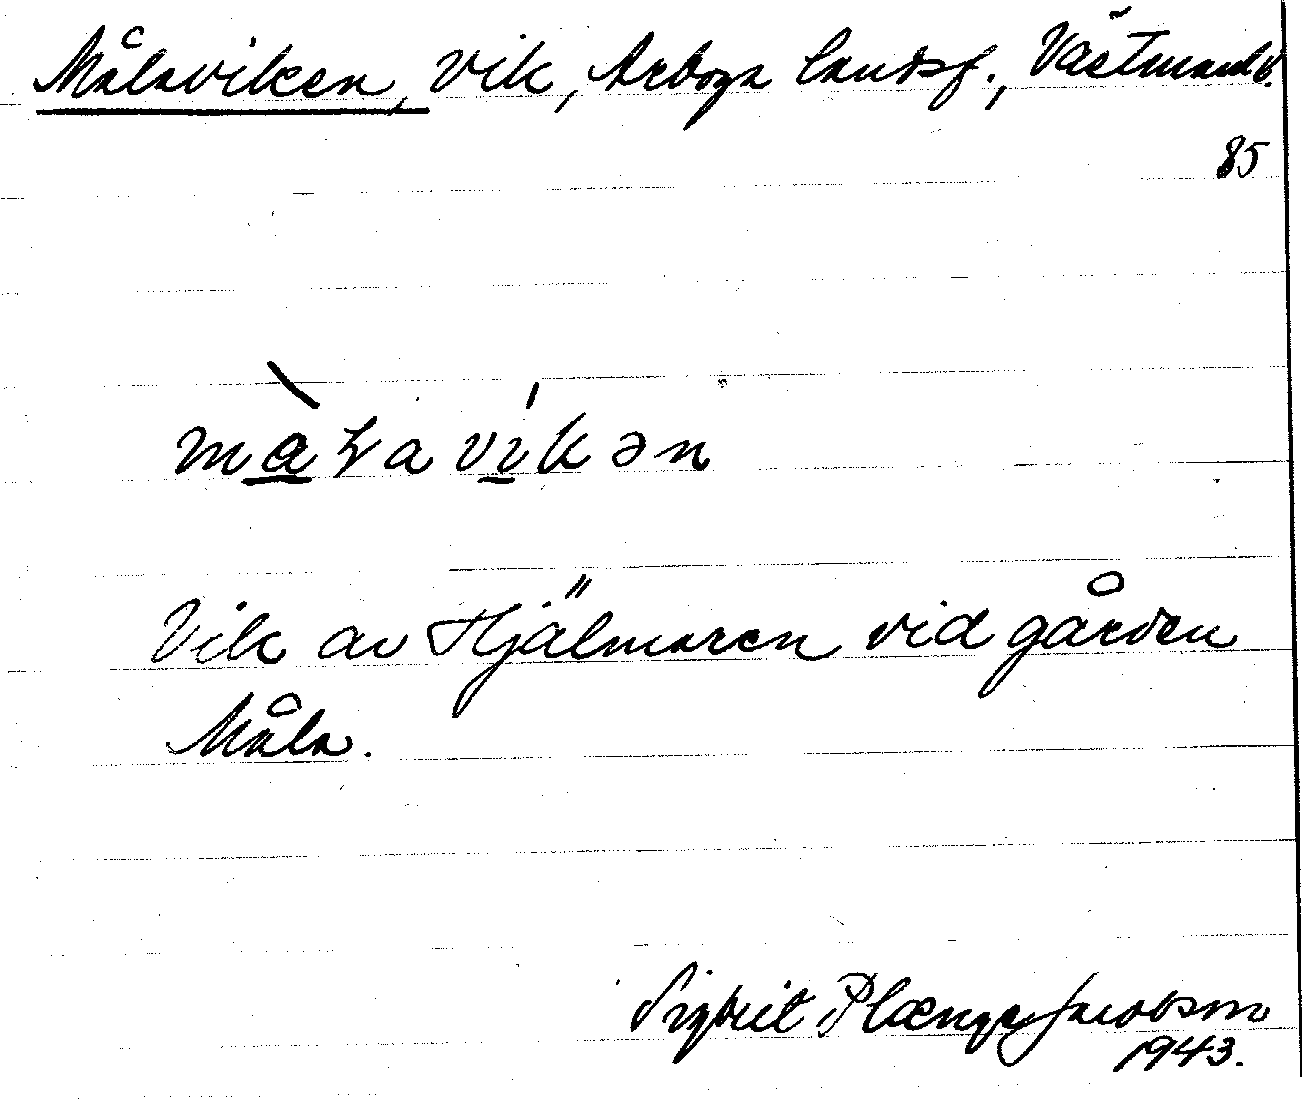 Målaviken, vik, Arboga landsf., Västmanl.
85
màlavíkən
Vik av Hjälmaren vid gården
Måla.
Sigbrit Plænge Jacobson
1943.